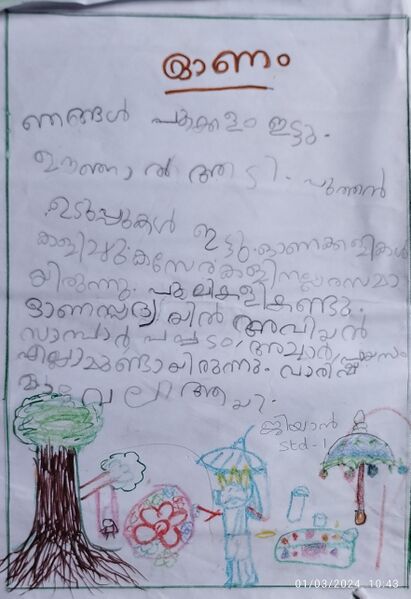 ഓണം
ഞങ്ങൾ പൂക്കളം ഇട്ടു.
ഊഞ്ഞാൽ ആടി. പുത്തൻ
ഉടുപ്പുകൾ ഇട്ടു. ഓണക്കളികൾ
കളിച്ചു. കസേരകളി നല്ല രസമാ
യിരുന്നു. പുലികളി കണ്ടു.
ഓണസദ്യയിൽ അവിയൽ
സാമ്പാർ പപ്പടം, അച്ചാർ, പായസം
എല്ലാമുണ്ടായിരുന്നു.
മാവേലി ആയി.
ജിയാൻ
std-1
01/03/2024 10.43